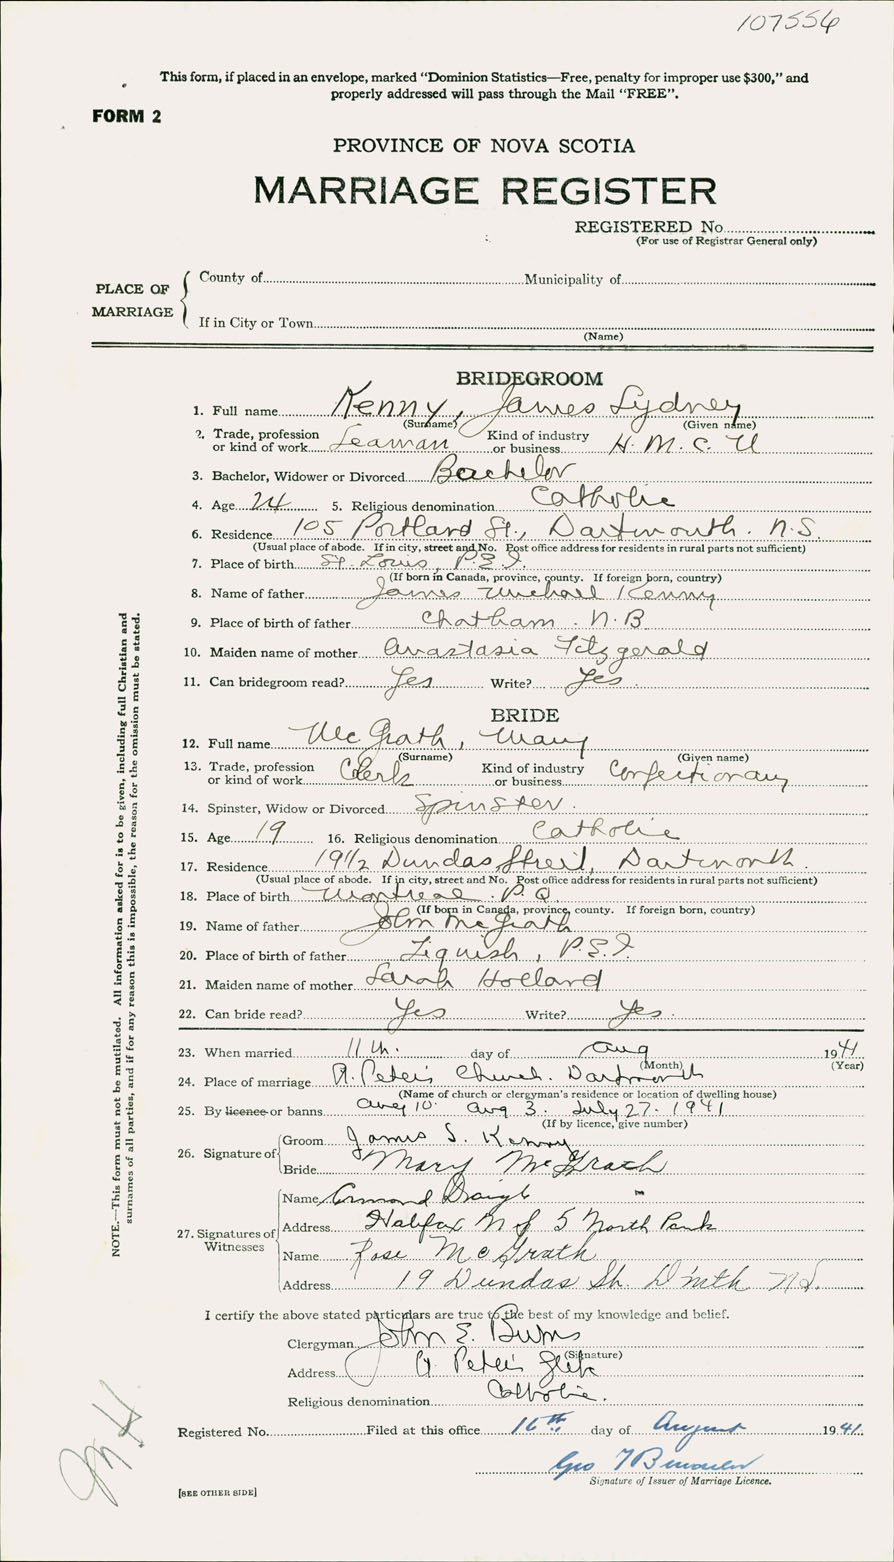 107556
This form, if placed in an envelope, marked "Dominion Statistics—Free, penalty for improper use $300," and
properly addressed will pass through the Mail "FREE".
FORM 2
PROVINCE OF NOVA SCOTIA
MARRIAGE REGISTER
REGISTERED No.
(For use of Registrar General only)
PLACE OF MARRIAGE
County of Municipality of
If in City or Town
(Name)
BRIDEGROOM
1. Full name Kenny, James Sydney
(Surname) (Given name)
2. Trade, profession or kind of work Seaman Kind of industry or business H.M.C.
3. Bachelor, Widower or Divorced Bachelor
4. Age 24 5. Religious denomination Catholic
6. Residence 105 Portland St., Dartmouth. N.S.
(Usual place of abode. If in city, street and No. Post office address for residents in rural parts not sufficient)
7. Place of birth St. Louis, P.E.I.
(If born in Canada, province, county. If foreign born, country)
8. Name of father James Michael Kenny
9. Place of birth of father Chatham. N.B
10. Maiden name of mother Anastasia Fitzgerald
11. Can bridegroom read? Yes Write? Yes.
BRIDE
12. Full name McGrath, Mary
(Surname) (Given name)
13. Trade, profession or kind of work Clerk Kind of industry or business Confectionary
14. Spinster, Widow or Divorced Spinster.
15. Age 19 16. Religious denomination Catholic
17. Residence 19 1/2 Dundas Street, Dartmouth.
(Usual place of abode. If in city, street and No. Post office address for residents in rural parts not sufficient)
18. Place of birth Montreal P.Q.
(If born in Canada, province, county. If foreign born, country)
19. Name of father John McGrath
20. Place of birth of father Tignish, P.E.I.
21. Maiden name of mother Sarah Holland
22. Can bride read? Yes Write? Yes.
23. When married 11th. day of Aug 1941
(Month) (Year)
24. Place of marriage St. Peter's Church. Dartmouth
(Name of church or clergyman's residence or location of dwelling house)
25. By licence or banns Aug 10. Aug 3. July 27. 1941
(If by licence, give number)
26. Signature of
Groom James S. Kenny
Bride Mary McGrath
27. Signatures of Witnesses
Name Armond
Address Halifax 5 North Park
Name Rose McGrath
Address 19 Dundas St. D'mth N.S.
I certify the above stated particulars are true to the best of my knowledge and belief.
Clergyman John E. Burns
(Signature)
Address St. Peter's Glebe
Religious denomination Catholic.
Registered No. Filed at this office 16th day of August 1941.
Geo
Signature of Issuer of Marriage Licence.
[SEE OTHER SIDE]
NOTE.—This form must not be mutilated. All information asked for is to be given, including full Christian and
surnames of all parties, and if for any reason this is impossible, the reason for the omission must be stated.